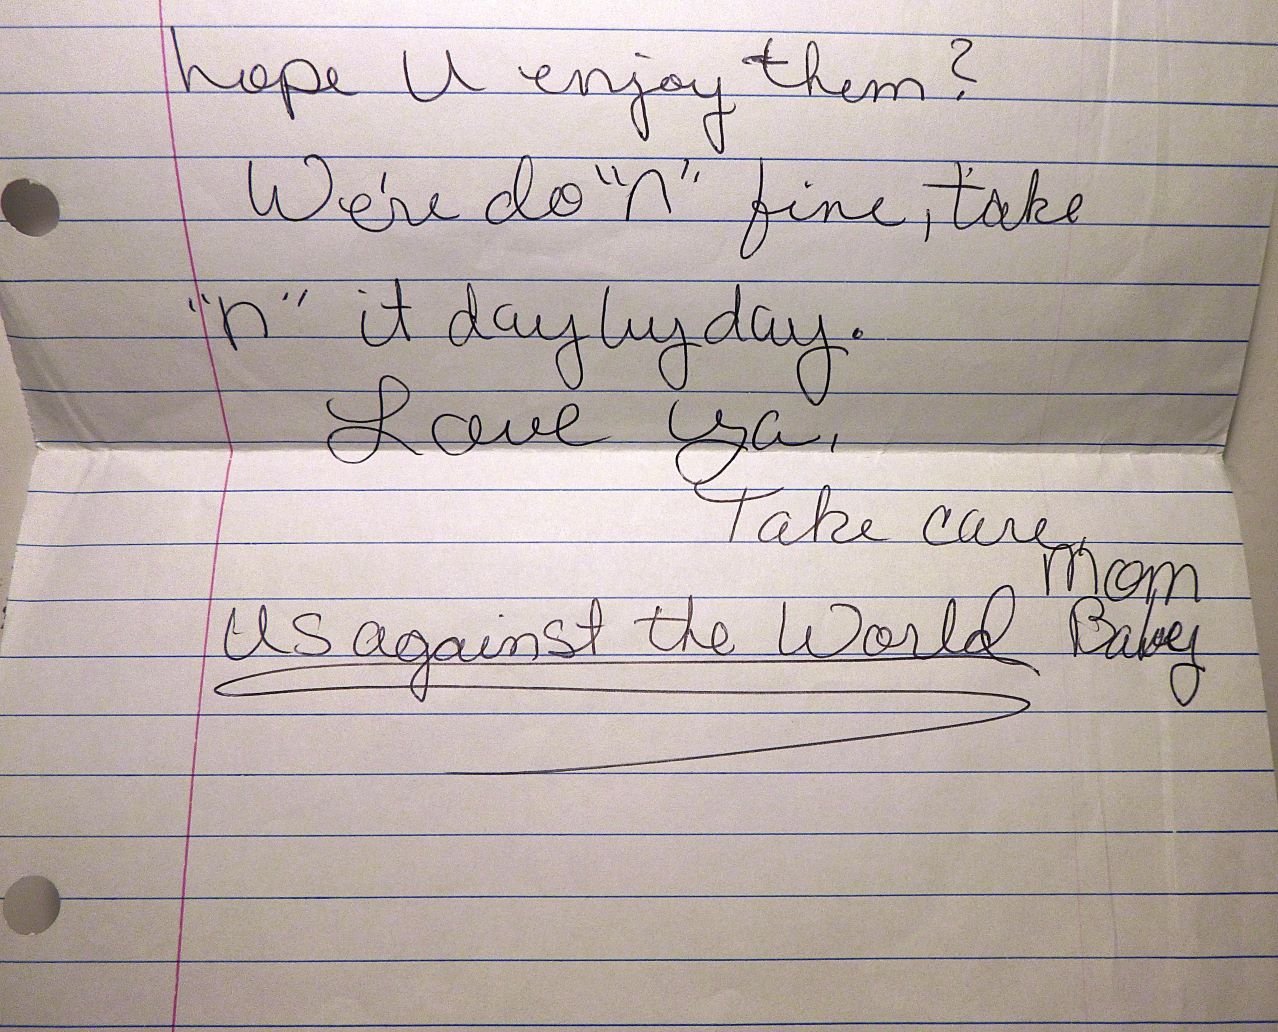 hope U enjoy them?
We're do "n" fine, take
"n" it day by day.
Love ya,
Take care,
Mom
Us against the World Baby